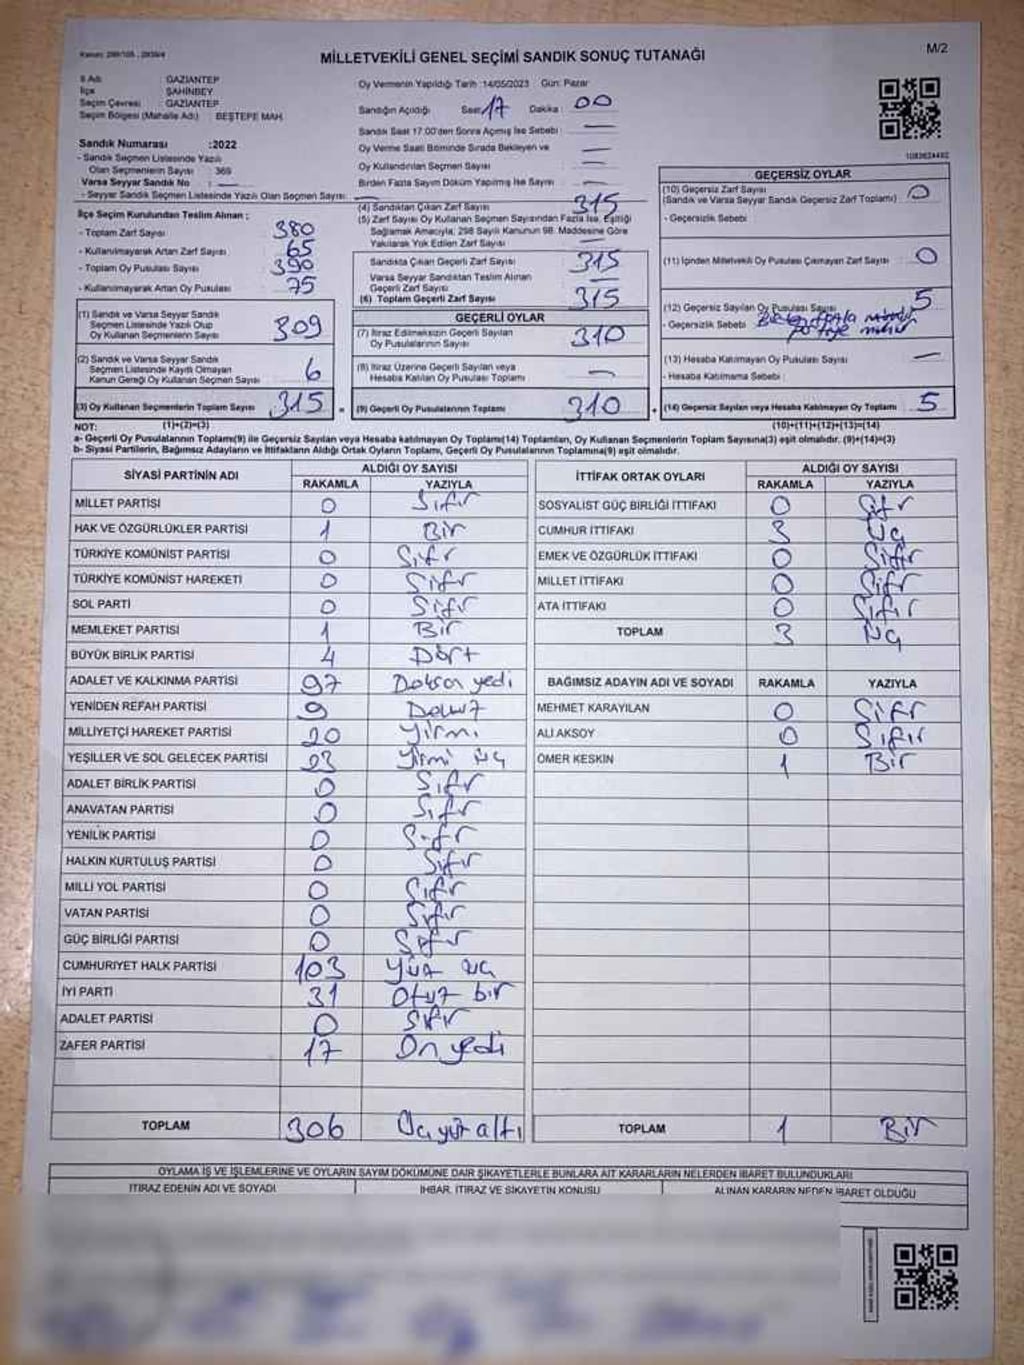 Kanun: 298/105 , 2839/4
MİLLETVEKİLİ GENEL SEÇİMİ SANDIK SONUÇ TUTANAĞI
M/2
İl Adı : GAZİANTEP
İlçe : ŞAHİNBEY
Seçim Çevresi : GAZİANTEP
Seçim Bölgesi (Mahalle Adı) : BEŞTEPE MAH.
Oy Vermenin Yapıldığı Tarih :14/05/2023 Gün: Pazar
Sandığın Açıldığı Saat: 17 Dakika : 00
Sandık Saat 17:00'den Sonra Açmış İse Sebebi : —
Oy Verme Saati Bitiminde Sırada Bekleyen ve —
Oy Kullandırılan Seçmen Sayısı : —
Birden Fazla Sayım Döküm Yapılmış İse Sayısı : —
Sandık Numarası :2022
- Sandık Seçmen Listesinde Yazılı
Olan Seçmenlerin Sayısı : 369
Varsa Seyyar Sandık No : —
- Seyyar Sandık Seçmen Listesinde Yazılı Olan Seçmen Sayısı: —
İlçe Seçim Kurulundan Teslim Alınan ;
- Toplam Zarf Sayısı : 380
- Kullanılmayarak Artan Zarf Sayısı : 65
- Toplam Oy Pusulası Sayısı : 390
- Kullanılmayarak Artan Oy Pusulası : 75
(1) Sandık ve Varsa Seyyar Sandık
Seçmen Listesinde Yazılı Olup
Oy Kullanan Seçmenlerin Sayısı : 309
(2) Sandık ve Varsa Seyyar Sandık
Seçmen Listesinde Kayıtlı Olmayan
Kanun Gereği Oy Kullanan Seçmen Sayısı : 6
(3) Oy Kullanan Seçmenlerin Toplam Sayısı : 315
(1)+(2)=(3)
(4) Sandıktan Çıkan Zarf Sayısı : 315
(5) Zarf Sayısı Oy Kullanan Seçmen Sayısından Fazla İse, Eşitliği
Sağlamak Amacıyla, 298 Sayılı Kanunun 98. Maddesine Göre
Yakılarak Yok Edilen Zarf Sayısı : —
Sandıkta Çıkan Geçerli Zarf Sayısı : 315
Varsa Seyyar Sandıktan Teslim Alınan
Geçerli Zarf Sayısı : —
(6) Toplam Geçerli Zarf Sayısı : 315
GEÇERLİ OYLAR
(7) İtiraz Edilmeksizin Geçerli Sayılan
Oy Pusulalarının Sayısı : 310
(8) İtiraz Üzerine Geçerli Sayılan veya
Hesaba Katılan Oy Pusulası Toplamı : —
= (9) Geçerli Oy Pusulalarının Toplamı : 310
GEÇERSİZ OYLAR
(10) Geçersiz Zarf Sayısı
(Sandık ve Varsa Seyyar Sandık Geçersiz Zarf Toplamı) : 0
- Geçersizlik Sebebi :
(11) İçinden Milletvekili Oy Pusulası Çıkmayan Zarf Sayısı : 0
(12) Geçersiz Sayılan Oy Pusulası Sayısı : 5
- Geçersizlik Sebebi :
(13) Hesaba Katılmayan Oy Pusulası Sayısı : —
- Hesaba Katılmama Sebebi :
+ (14) Geçersiz Sayılan veya Hesaba Katılmayan Oy Toplamı : 5
(10)+(11)+(12)+(13)=(14)
NOT:
a- Geçerli Oy Pusulalarının Toplamı(9) ile Geçersiz Sayılan veya Hesaba katılmayan Oy Toplamı(14) Toplamları, Oy Kullanan Seçmenlerin Toplam Sayısına(3) eşit olmalıdır. (9)+(14)=(3)
b- Siyasi Partilerin, Bağımsız Adayların ve İttifakların Aldığı Ortak Oyların Toplamı, Geçerli Oy Pusulalarının Toplamına(9) eşit olmalıdır.
SİYASİ PARTİNİN ADI ALDIĞI OY SAYISI
RAKAMLA YAZIYLA
MİLLET PARTİSİ 0 Sıfır
HAK VE ÖZGÜRLÜKLER PARTİSİ 1 Bir
TÜRKİYE KOMÜNİST PARTİSİ 0 Sıfır
TÜRKİYE KOMÜNİST HAREKETİ 0 Sıfır
SOL PARTİ 0 Sıfır
MEMLEKET PARTİSİ 1 Bir
BÜYÜK BİRLİK PARTİSİ 4 Dört
ADALET VE KALKINMA PARTİSİ 97 Doksan yedi
YENİDEN REFAH PARTİSİ 9 Dokuz
MİLLİYETÇİ HAREKET PARTİSİ 20 Yirmi
YEŞİLLER VE SOL GELECEK PARTİSİ 23 Yirmi üç
ADALET BİRLİK PARTİSİ 0 Sıfır
ANAVATAN PARTİSİ 0 Sıfır
YENİLİK PARTİSİ 0 Sıfır
HALKIN KURTULUŞ PARTİSİ 0 Sıfır
MİLLİ YOL PARTİSİ 0 Sıfır
VATAN PARTİSİ 0 Sıfır
GÜÇ BİRLİĞİ PARTİSİ 0 Sıfır
CUMHURİYET HALK PARTİSİ 103 Yüz üç
İYİ PARTİ 31 Otuz bir
ADALET PARTİSİ 0 Sıfır
ZAFER PARTİSİ 17 On yedi
TOPLAM 306 Üç yüz altı
İTTİFAK ORTAK OYLARI ALDIĞI OY SAYISI
RAKAMLA YAZIYLA
SOSYALİST GÜÇ BİRLİĞİ İTTİFAKI 0 Sıfır
CUMHUR İTTİFAKI 3 Üç
EMEK VE ÖZGÜRLÜK İTTİFAKI 0 Sıfır
MİLLET İTTİFAKI 0 Sıfır
ATA İTTİFAKI 0 Sıfır
TOPLAM 3 Üç
BAĞIMSIZ ADAYIN ADI VE SOYADI RAKAMLA YAZIYLA
MEHMET KARAYILAN 0 Sıfır
ALİ AKSOY 0 Sıfır
ÖMER KESKİN 1 Bir
TOPLAM 1 Bir
OYLAMA İŞ VE İŞLEMLERİNE VE OYLARIN SAYIM DÖKÜMÜNE DAİR ŞİKAYETLERLE BUNLARA AİT KARARLARIN NELERDEN İBARET BULUNDUKLARI
İTİRAZ EDENİN ADI VE SOYADI İHBAR, İTİRAZ VE ŞİKAYETİN KONUSU ALINAN KARARIN NEDEN İBARET OLDUĞU